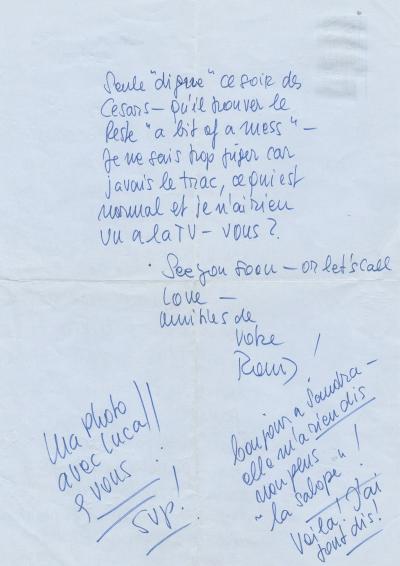 Seule "digne" ce soir des
Cesars – qu'il trouver le
Reste "a bit of a mess" –
Je ne sais trop juger car
j'avais le trac, ce qui est
normal et je n'ai rien
vu a la TV – vous?
See you soon – or let's call
Love –
amitiés de
votre
Romy !
Ma photo
avec Luca !!
& vous
svp!
bonjour a Sandra –
elle m'a rien dis
non plus !
"la salope"
Voila! J'ai
tout dis!